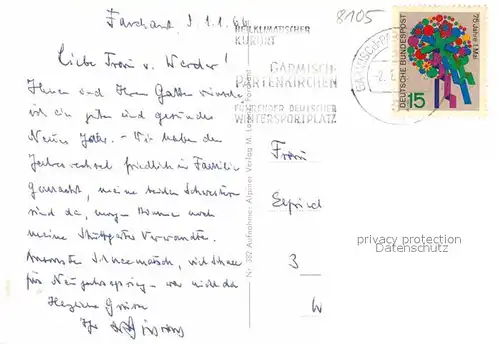 Farchant, d. 1.1.66
Liebe Frau v. Werder!
Ihnen und Ihrem Gatten wünsche
ich ein gutes und gesundes
Neues Jahr. - Wir haben den
Jahreswechsel friedlich in Familie
gemacht, meine beiden Schwestern
sind da, morgen kommen noch
meine Stuttgarter Verwandte.
Schneematsch, viel
für Neujahrspring - war nicht da
Herzliche Grüsse
Ihr
8105
HEILKLIMATISCHER
KURORT
GARMISCH-
PARTENKIRCHEN
FÜHRENDER DEUTSCHER
WINTERSPORTPLATZ
GARMISCH-PA
-2.1.
75 Jahre 1. Mai
DEUTSCHE BUNDESPOST
15
Nr. 392 Aufnahme: Alpiner Verlag M.
Frau
3
W
privacy protection
Datenschutz